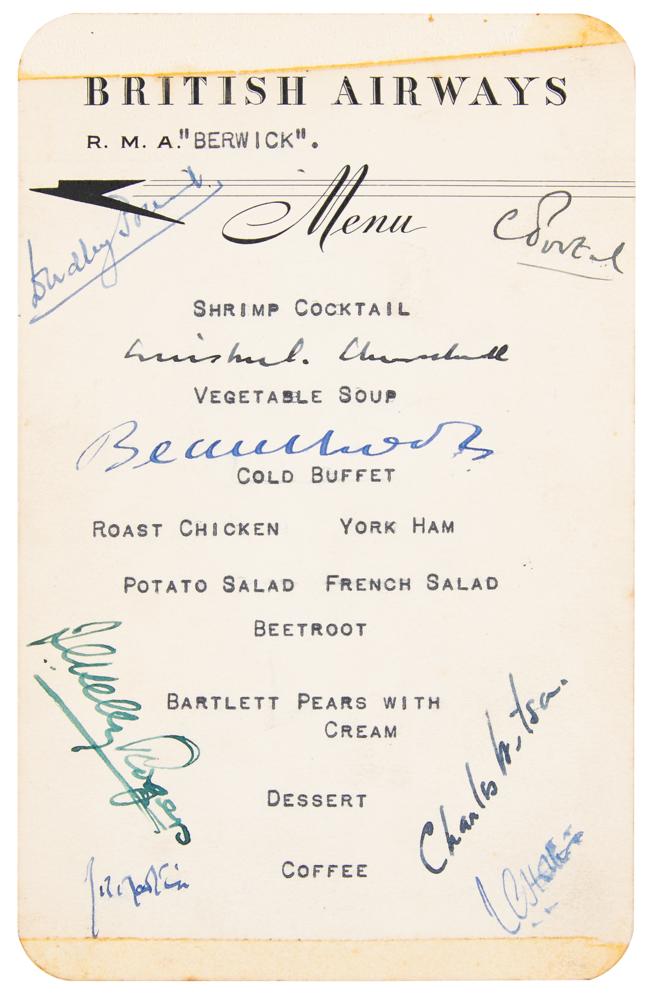 BRITISH AIRWAYS
R. M. A. "BERWICK".
Menu
Dudley Pound.
C Portal
SHRIMP COCKTAIL
Winston S. Churchill
VEGETABLE SOUP
Beaverbrook
COLD BUFFET
ROAST CHICKEN YORK HAM
POTATO SALAD FRENCH SALAD
BEETROOT
BARTLETT PEARS WITH
CREAM
Kelly Rogers
Charles Wilson.
DESSERT
COFFEE